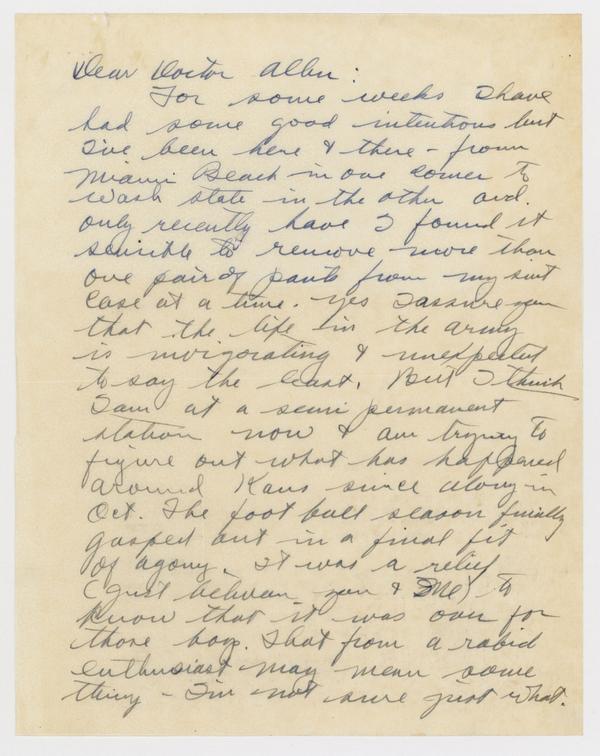 Dear Doctor Allen:
For some weeks I have
had some good intentions but
I've been here & there - from
Miami Beach in one corner to
Wash state in the other and.
only recently have I found it
sensible to remove more than
one pair of pants from my suit
case at a time. Yes I assure you
that the life in the army
is invigorating & unexpected
to say the least. But I think
I am at a semi permanent
station now & am trying to
figure out what has happened
around Kans since along in
Oct. The foot ball season finally
gasped out in a final fit
of agony. It was a relief
(just between you & me) to
know that it was over for
those boys. That from a rabid
enthusiast may mean some
thing - I'm not sure just what.